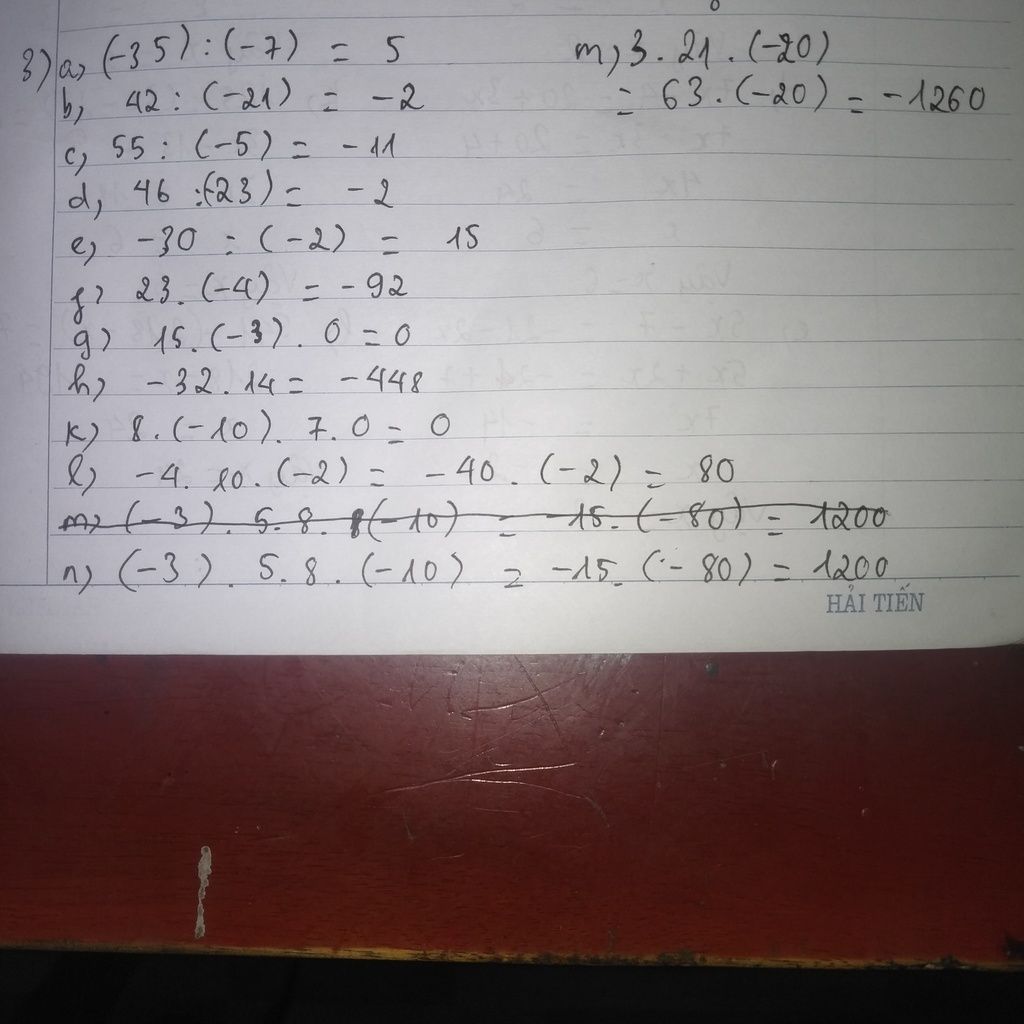 3) a, (-35) : (-7) = 5
b, 42 : (-21) = -2
c, 55 : (-5) = -11
d, 46 :(-23) = -2
e, -30 : (-2) = 15
f, 23. (-4) = -92
g) 15. (-3). 0 = 0
h) -32. 14 = -448
k) 8. (-10). 7. 0 = 0
l) -4. 10. (-2) = -40. (-2) = 80
m, (-3). 5. 8. (-10) = -15. (-80) = 1200
n) (-3). 5. 8. (-10) = -15. (-80) = 1200
m, 3. 21. (-20)
= 63. (-20) = -1260
HẢI TIẾN